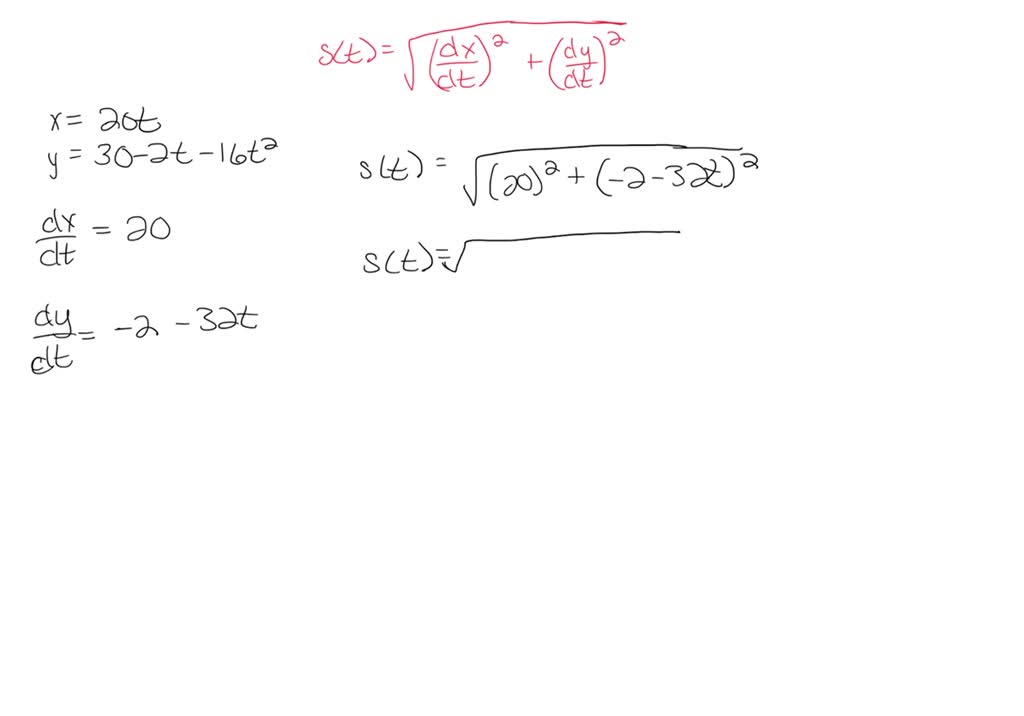 s(t) = √((dx/dt)² + (dy/dt)²)
x = 20t
y = 30-2t-16t²
s(t) = √((20)² + (-2-32t)²)
dx/dt = 20
s(t) = √
dy/dt = -2 - 32t